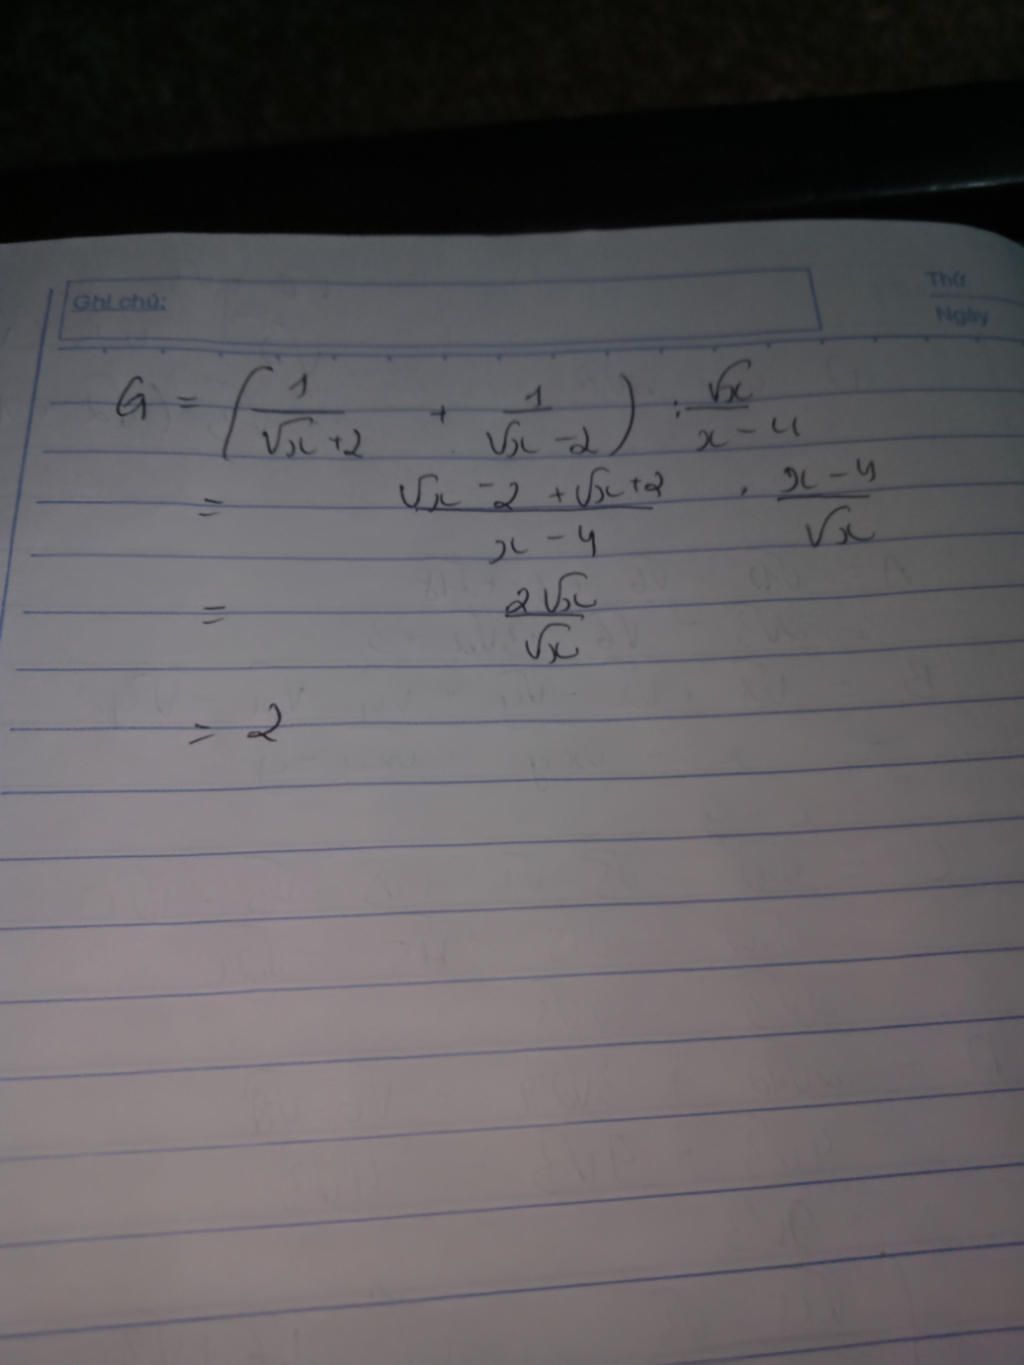 Ghi chú:
Thứ
Ngày
G = (1/(√x + 2) + 1/(√x - 2)) : √x/(x - 4)
= (√x - 2 + √x + 2)/(x - 4) . (x - 4)/√x
= 2√x/√x
= 2